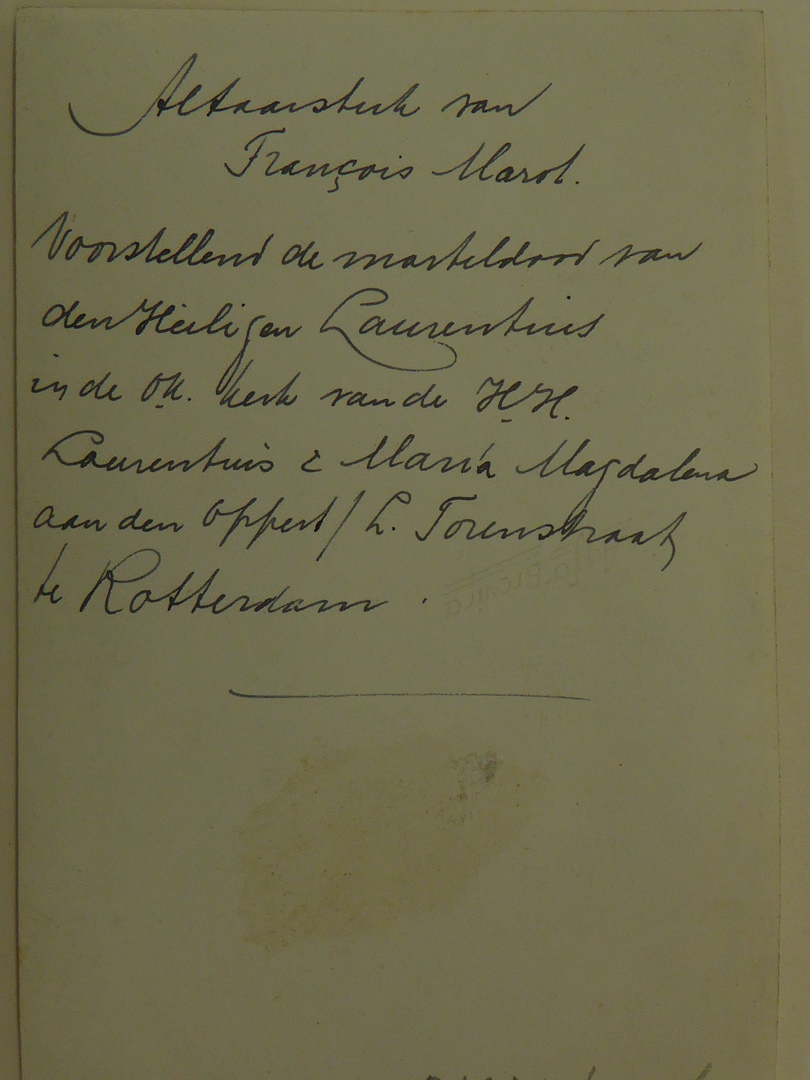 Altaarstuk van
François Marot.
Voorstellend de marteldood van
den Heiligen Laurentius
in de O.K. Kerk van de H.H.
Laurentius & Maria Magdalena
aan den Oppert / L. Torenstraat
te Rotterdam.